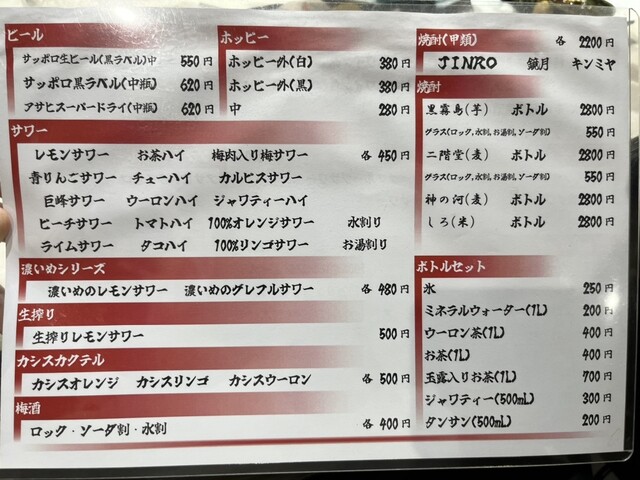 ビール
サッポロ生ビール(黒ラベル)中 550円
サッポロ黒ラベル(中瓶) 620円
アサヒスーパードライ(中瓶) 620円
ホッピー
ホッピー外(白) 380円
ホッピー外(黒) 380円
中 280円
サワー
レモンサワー お茶ハイ 梅肉入り梅サワー 各 450円
青りんごサワー チューハイ カルピスサワー
巨峰サワー ウーロンハイ ジャワティーハイ
ピーチサワー トマトハイ 100%オレンジサワー 水割り
ライムサワー タコハイ 100%リンゴサワー お湯割り
濃いめシリーズ
濃いめのレモンサワー 濃いめのグレフルサワー 各 480円
生搾り
生搾りレモンサワー 500円
カシスカクテル
カシスオレンジ カシスリンゴ カシスウーロン 各 500円
梅酒
ロック・ソーダ割・水割 各 400円
焼酎(甲類) 各 2200円
JINRO 鏡月 キンミヤ
焼酎
黒霧島(芋) ボトル 2800円
グラス(ロック、水割、お湯割、ソーダ割) 550円
二階堂(麦) ボトル 2800円
グラス(ロック、水割、お湯割、ソーダ割) 550円
神の河(麦) ボトル 2800円
しろ(米) ボトル 2800円
ボトルセット
氷 250円
ミネラルウォーター(1L) 200円
ウーロン茶(1L) 400円
お茶(1L) 400円
玉露入りお茶(1L) 700円
ジャワティー(500mL) 300円
タンサン(500mL) 200円